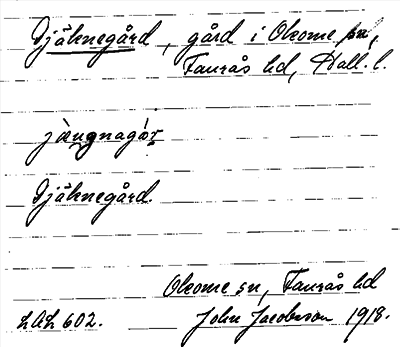 Djäknegård, gård i Okome sn,
Faurås hd, Hall. l.
Djäknegård.
Okome sn, Faurås hd
LAL 602. John Jacobsson 1918.